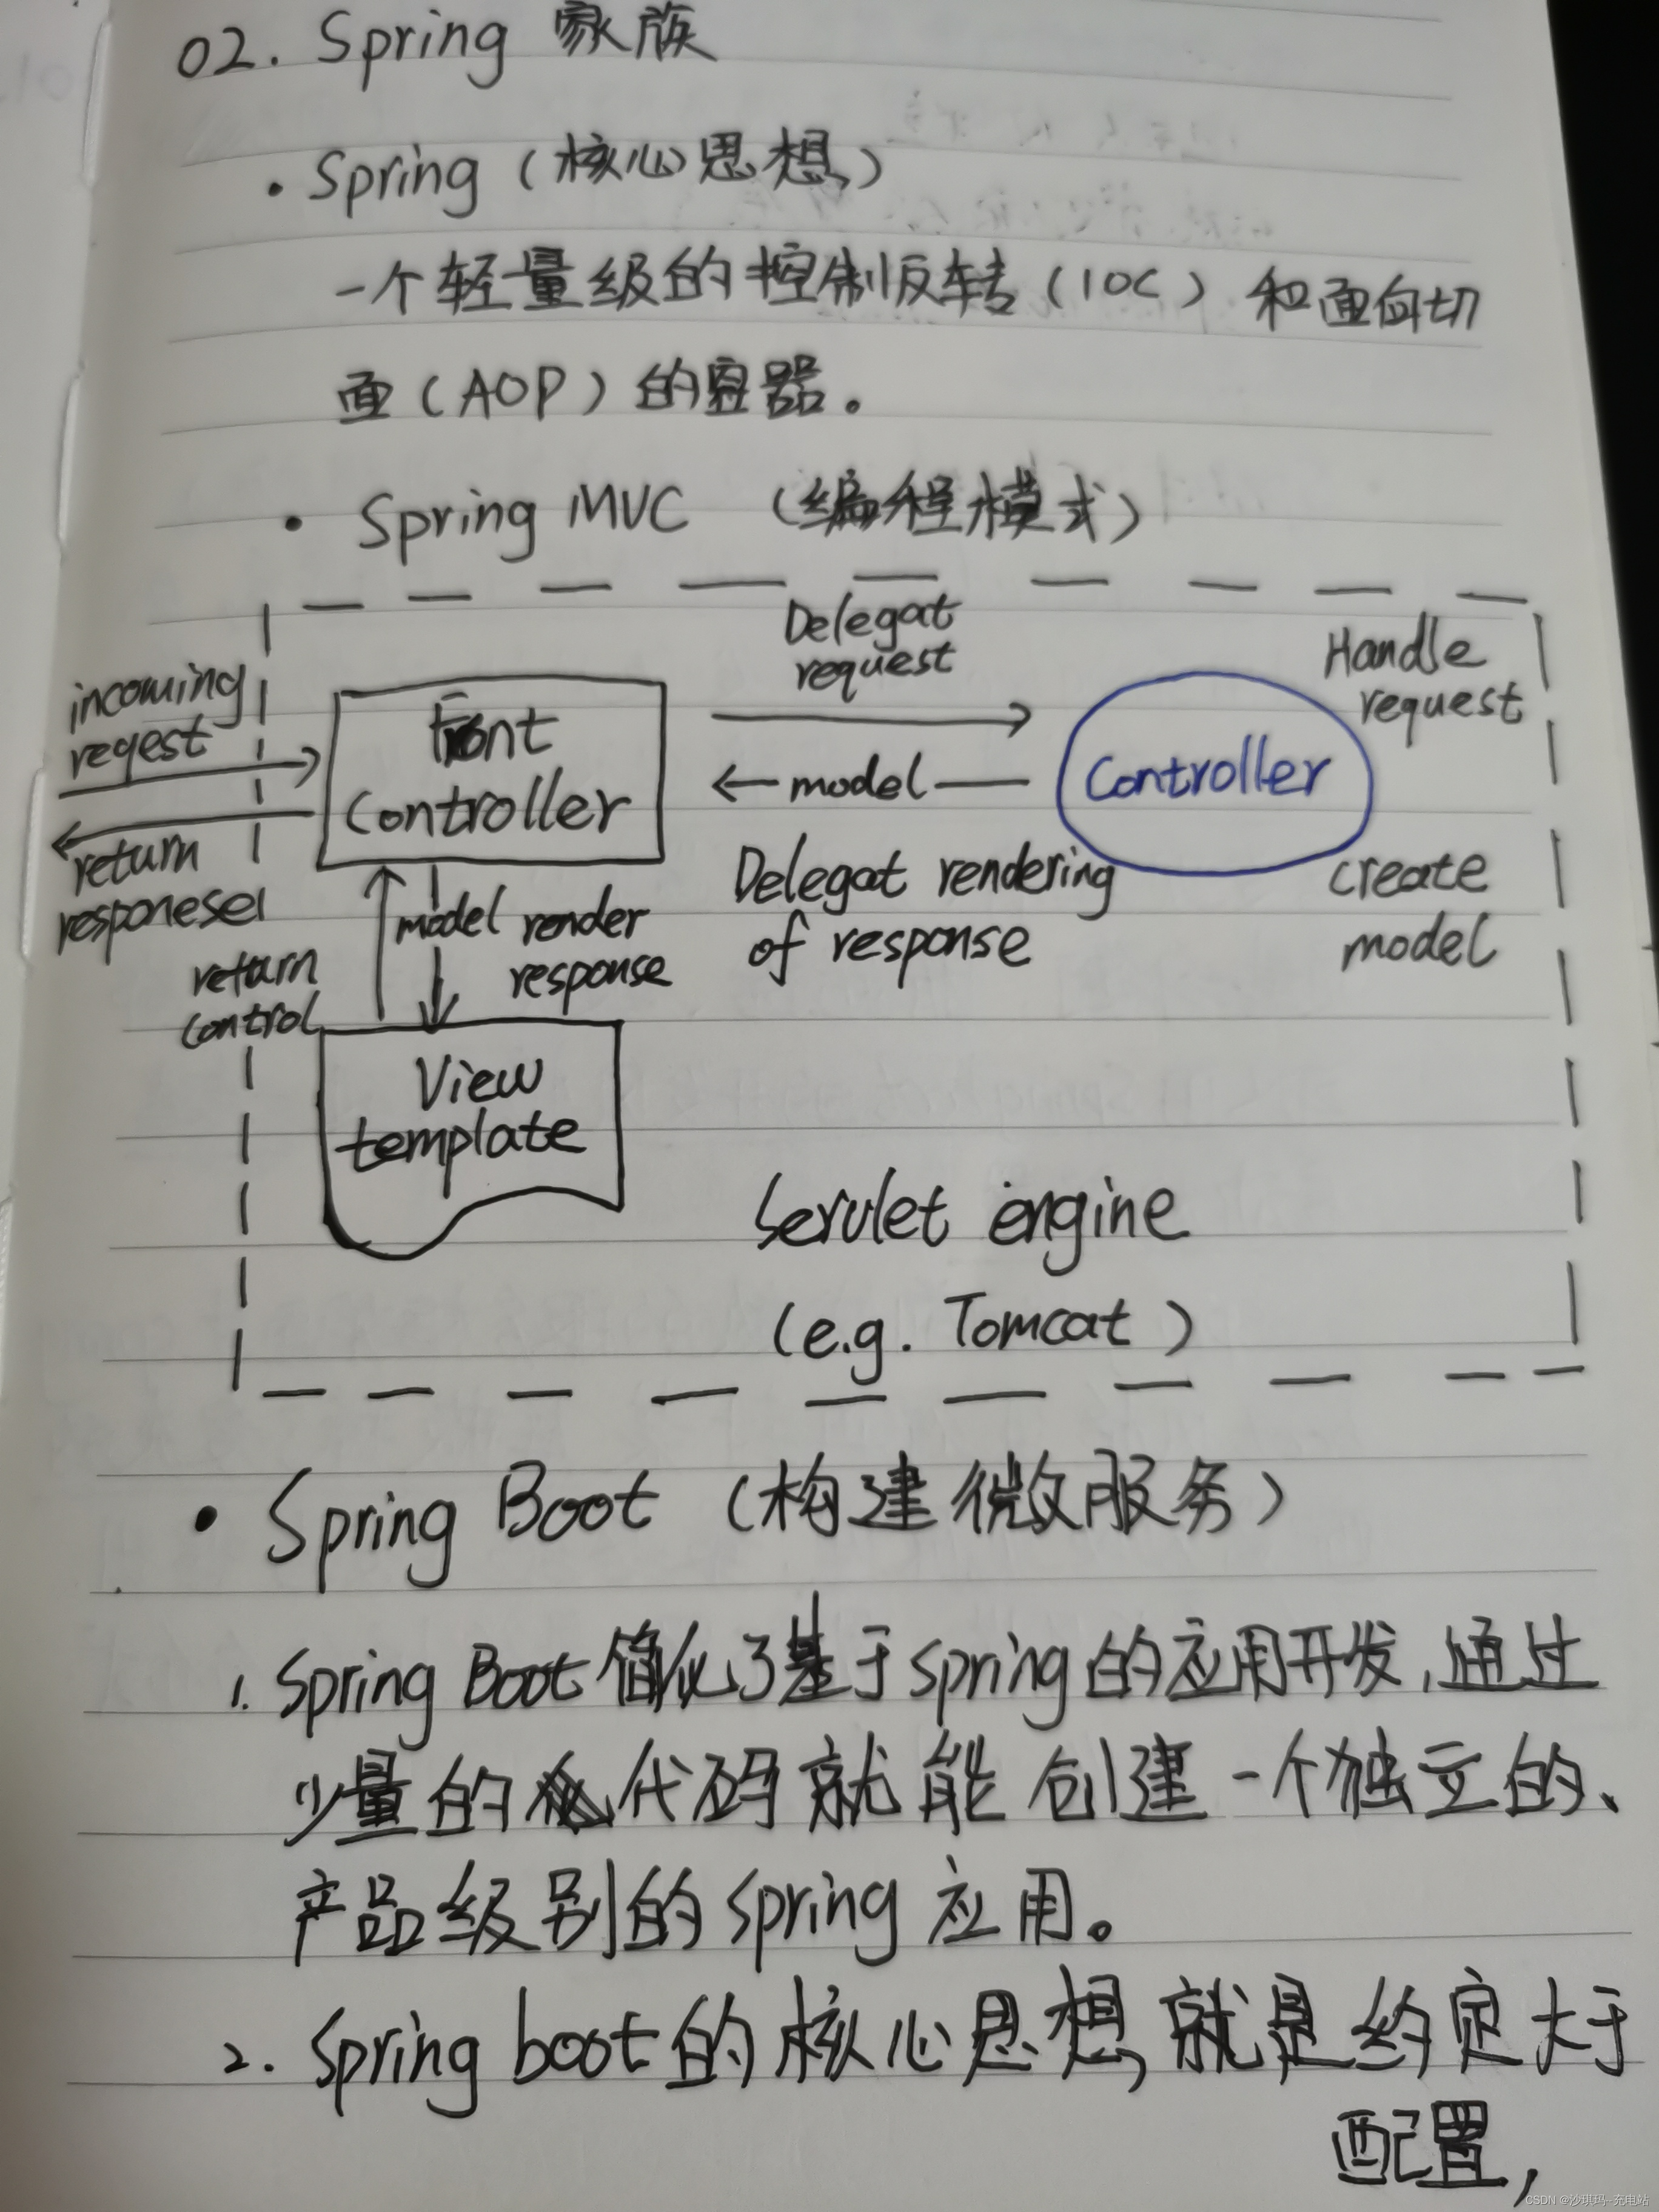 02. Spring 家族
• Spring（核心思想）
一个轻量级的控制反转（IOC）和面向切
面（AOP）的容器。
• Spring MVC （编程模式）
Delegat
request
Handle
request
incoming
reqest
Front
Controller
Controller
model
return
responese
Delegat rendering
of response
create
model
model
render
response
return
control
View
template
Servlet engine
(e.g. Tomcat)
• Spring Boot（构建微服务）
1. Spring Boot 简化了基于spring的应用开发，通过
少量的代码就能创建一个独立的、
产品级别的spring应用。
2. Spring boot的核心思想，就是约定大于
配置，
CSDN @沙琪玛-充电站